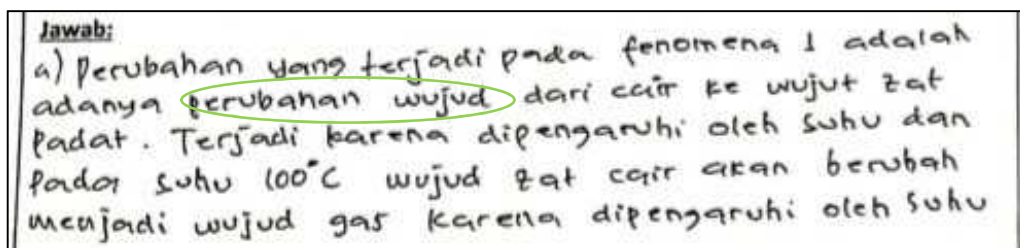 Jawab:
a) perubahan yang terjadi pada fenomena 1 adalah
adanya perubahan wujud dari cair ke wujut zat
padat. Terjadi karena dipengaruhi oleh suhu dan
pada suhu 100°C wujud zat cair akan berubah
menjadi wujud gas karena dipengaruhi oleh suhu